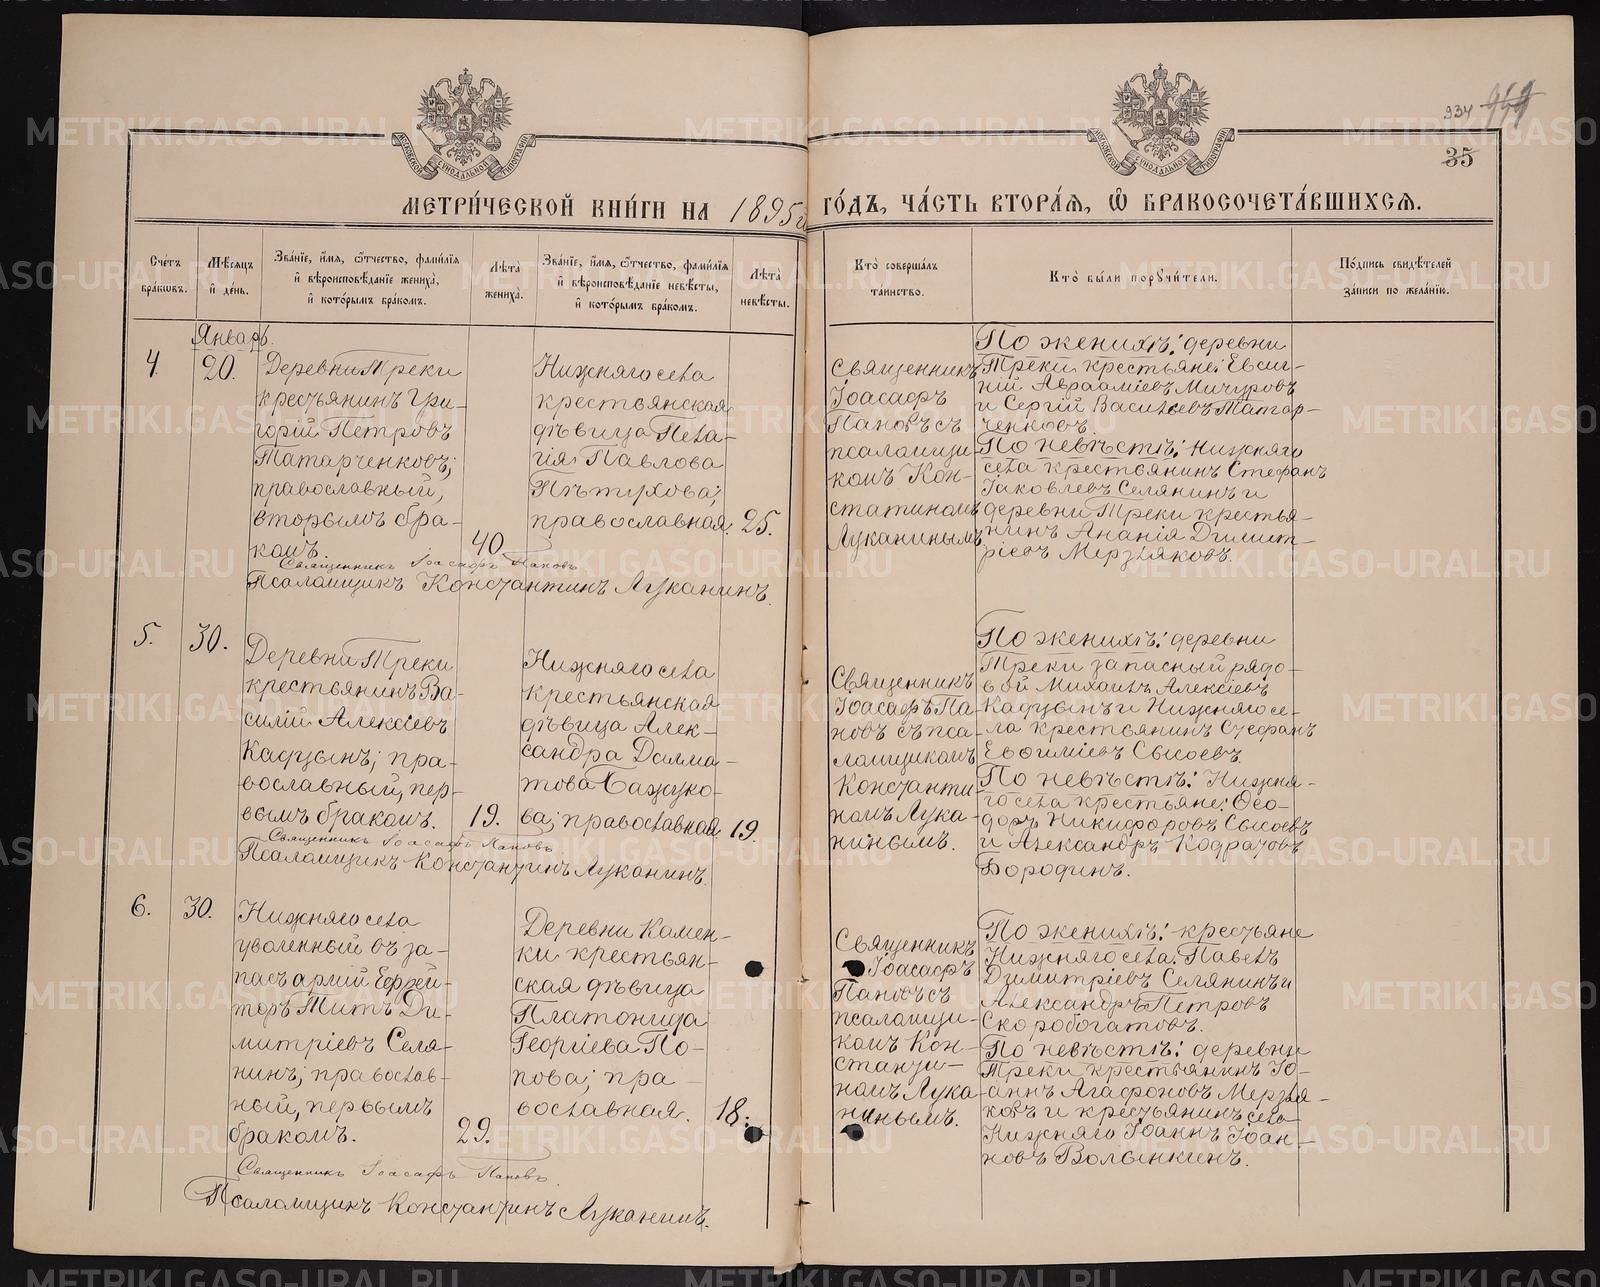 934 949
35
МОСКОВСКОЙ СУНОДАЛЬНОЙ ТИПОГРАФІИ
МОСКОВСКОЙ СУНОДАЛЬНОЙ ТИПОГРАФІИ
МЕТРИ́ЧЕСКОЙ КНИ́ГИ НА 1895 г
ГО́ДЪ, ЧА́СТЬ ВТОРА́Ѧ, Ѽ БРАКОСОЧЕТА́ВШИХСѦ.
Сче́тъ бра́кωвъ.
Мѣ́сѧцъ и҆ де́нь.
Зва́нїе, и҆́мѧ, ѻ҆́тчество, фамилїѧ
и҆ вѣроисповѣ́данїе жениха̀,
и҆ кото́рымъ бра́комъ.
Лѣ́та жениха̀.
Зва́нїе, и҆́мѧ, ѻ҆́тчество, фамилїѧ
и҆ вѣроисповѣ́данїе невѣ́сты,
и҆ кото́рымъ бра́комъ.
Лѣ́та невѣ́сты.
Кто̀ соверша́лъ
та́инство.
Кто̀ бы́ли порꙋчи́тели.
По́дпись свидѣ́телей
за́писи по жела́нїю.
Январь.
4.
20.
Деревни Треки
крестьянинъ Гри-
горій Петровъ
Татарченковъ;
православный,
вторымъ бра-
комъ.
40.
Нижняго села
крестьянская
дѣвица Пела-
гія Павлова
Пѣтухова;
православная.
25.
Священникъ
Іоасафъ
Пановъ съ
псаломщи-
комъ Кон-
стантиномъ
Луканинымъ
По женихѣ: деревни
Треки крестьяне: Евси-
ній Авраамiевъ Мичуровъ
и Сергій Васильевъ Татар-
ченковъ.
По невѣстѣ: Нижняго
села крестьянинъ Стефанъ
Іаковлевъ Селянинъ и
деревни Треки крестья-
нинъ Ананія Димит-
ріевъ Мерзляковъ.
Священникъ Іоасафъ Пановъ
Псаломщикъ Константинъ Луканинъ.
5.
30.
Деревни Треки
крестьянинъ Ва-
силій Алексіевъ
Кадцынъ; пра-
вославный, пер-
вымъ бракомъ.
19.
Нижняго села
крестьянская
дѣвица Алек-
сандра Далма-
това Бажуко-
ва; православная.
19.
Священникъ
Іоасафъ Па-
новъ съ пса-
ломщикомъ
Константи-
номъ Лука-
нинымъ.
По женихѣ: деревни
Треки запасный рядо-
вой Михаилъ Алексіевъ
Кадцынъ и Нижняго се-
ла крестьянинъ Стефанъ
Евѳиміевъ Сысоевъ.
По невѣстѣ: Нижня-
го села крестьяне: Ѳео-
доръ Никифоровъ Сысоевъ
и Александръ Кодратовъ
Бородинъ.
Священникъ Іоасафъ Пановъ
Псаломщикъ Константинъ Луканинъ.
6.
30.
Нижняго села
уволенный въ за-
пасъ арміи Ефрей-
торъ Титъ Ди-
митріевъ Селя-
нинъ; православ-
ный, первымъ
бракомъ.
29.
Деревни Камен-
ки крестьян-
ская дѣвица
Платонида
Георгіева По-
пова; пра-
вославная.
18.
Священникъ
Іоасафъ
Пановъ съ
псаломщи-
комъ Кон-
станти-
номъ Лука-
нинымъ.
По женихѣ: крестьяне
Нижняго села: Павелъ
Димитріевъ Селянинъ и
Александръ Петровъ
Скоробогатовъ.
По невѣстѣ: деревни
Треки крестьянинъ Іо-
аннъ Агафоновъ Мерзля-
ковъ и крестьянинъ села
Нижняго Іоаннъ Іоан-
новъ Волынкинъ.
Священникъ Іоасафъ Пановъ.
Псаломщикъ Константинъ Луканинъ.
METRIKI.GASO-URAL.RU